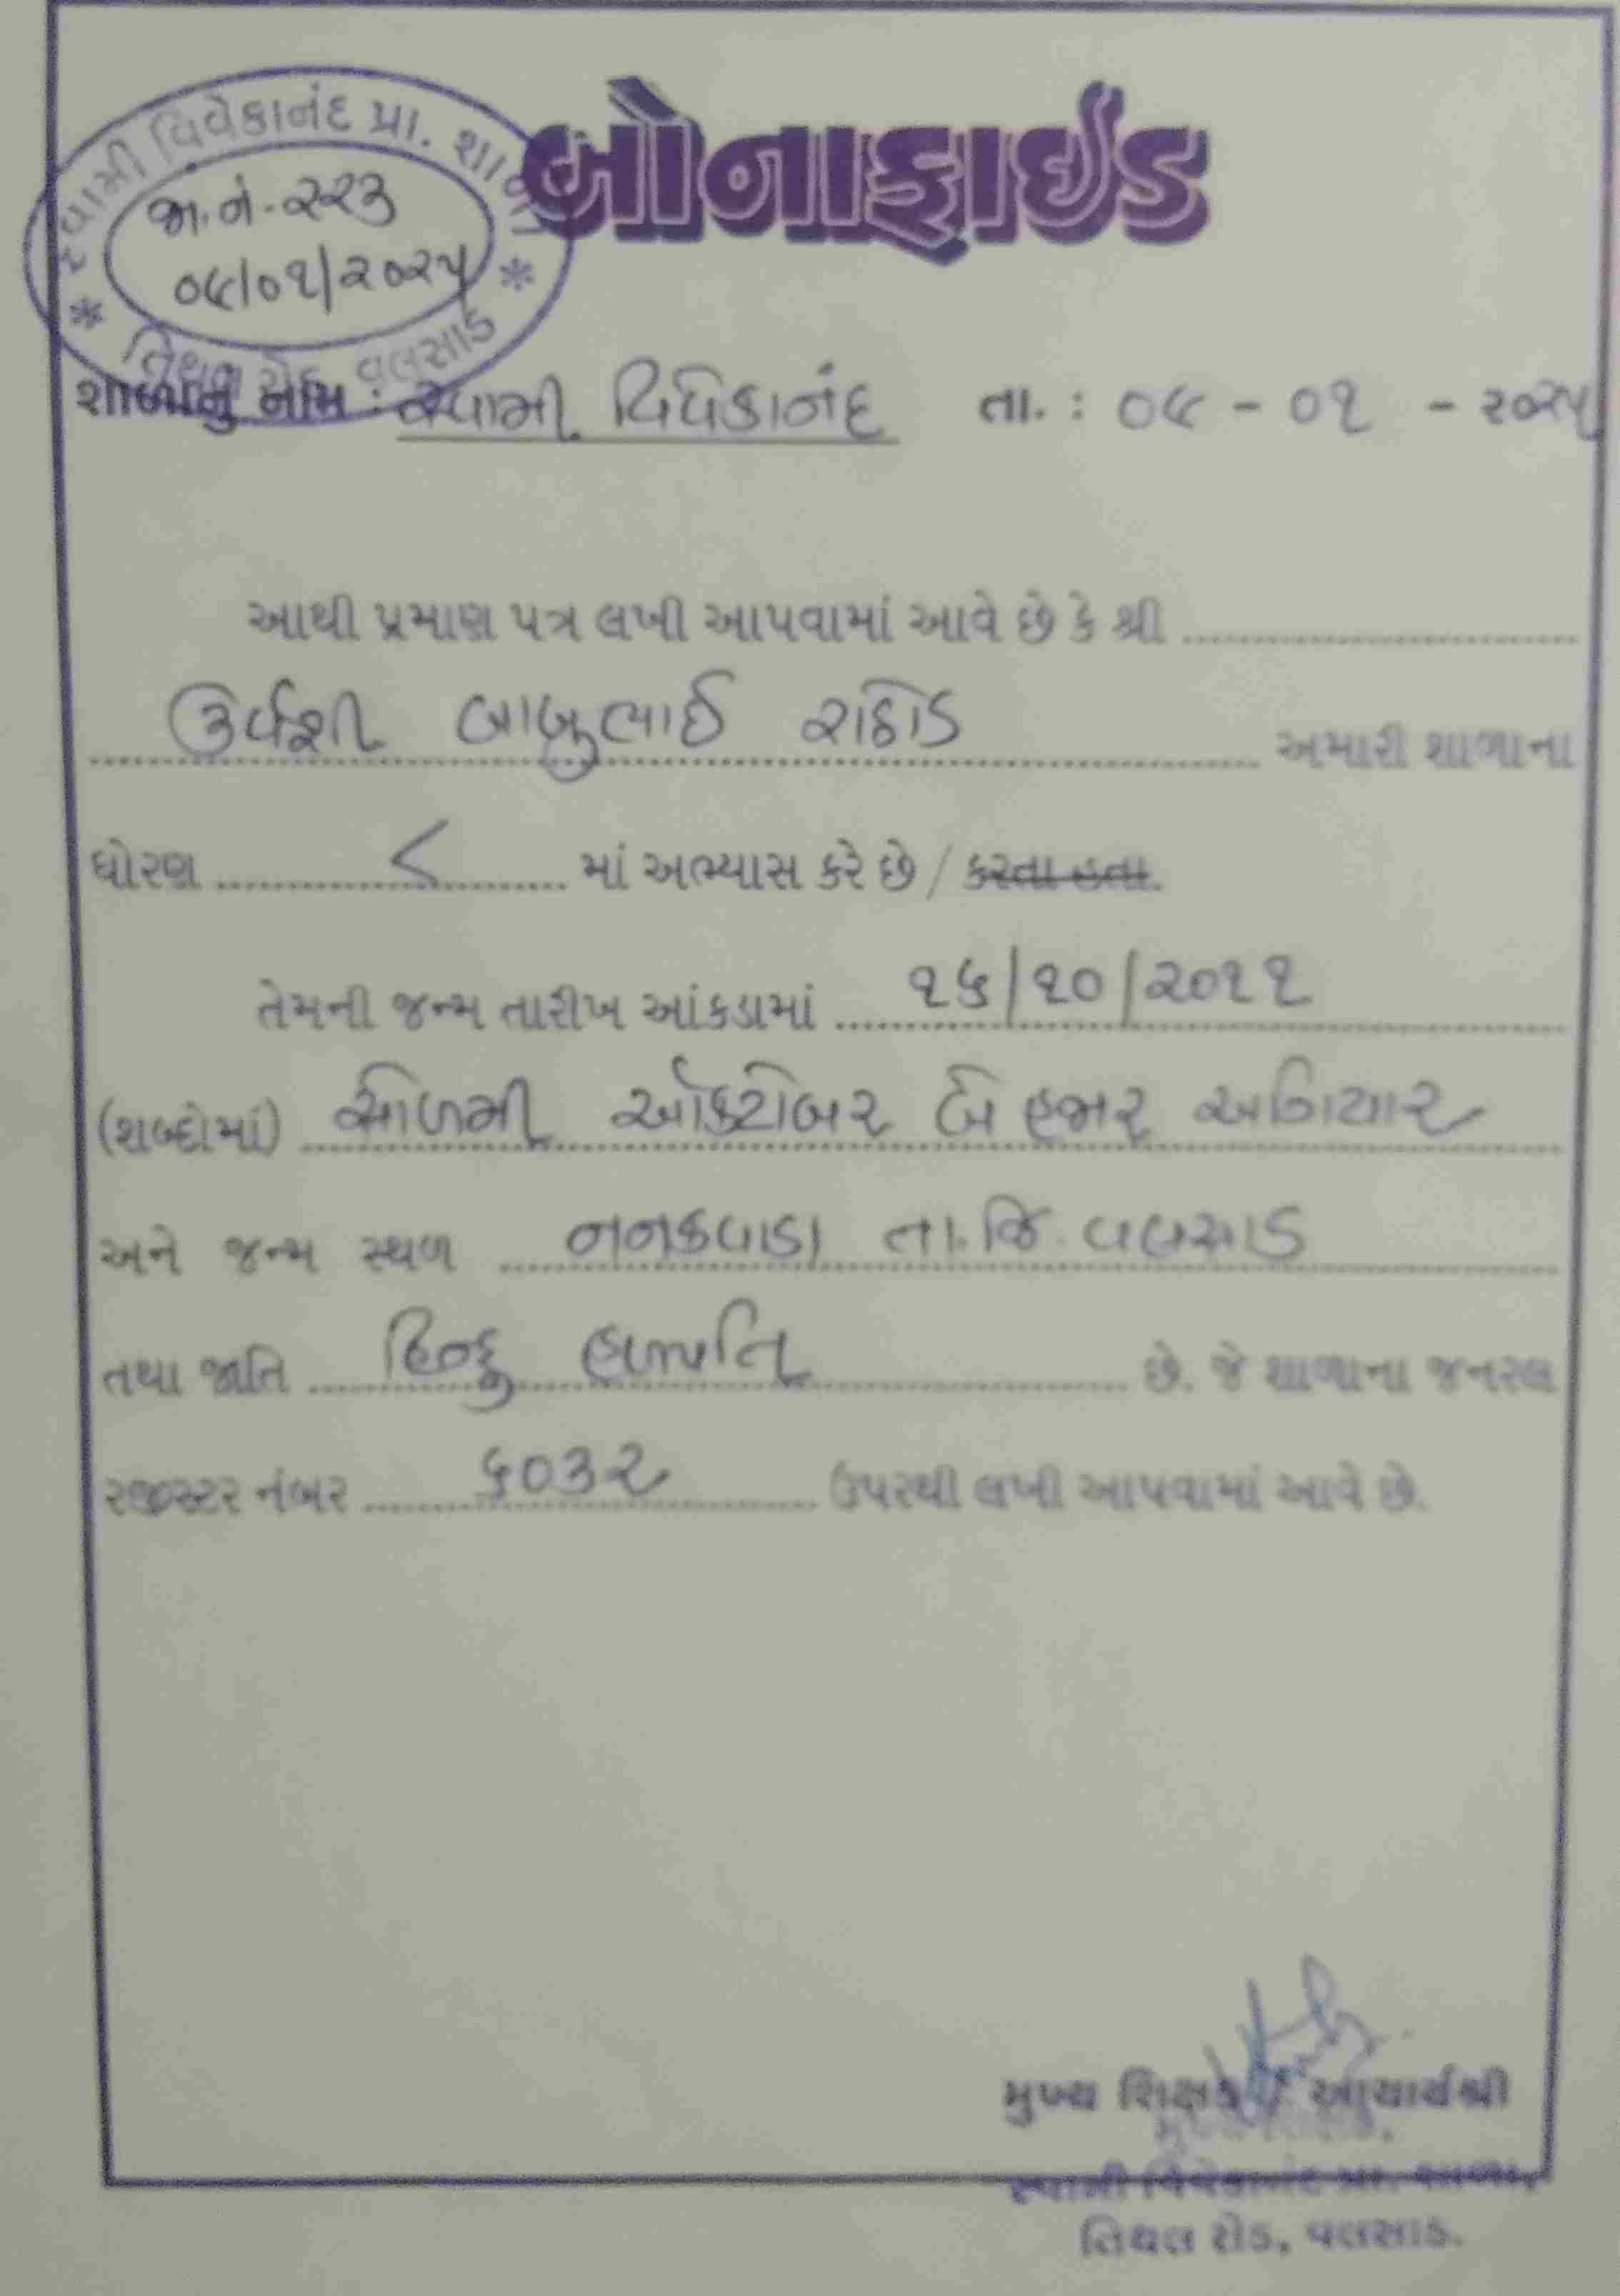 સ્વામી વિવેકાનંદ પ્રા. શાળા
બોનાફાઈડ
જા.નં.-૨૨૩
૦૯/૦૧/૨૦૨૫
* તિથલ રોડ વલસાડ *
શાળાનું નામ : સ્વામી વિવેકાનંદ તા. : ૦૯ - ૦૧ - ૨૦૨૫
આથી પ્રમાણ પત્ર લખી આપવામાં આવે છે કે શ્રી
ઉર્વશી બાબુભાઈ રાઠોડ અમારી શાળાના
ધોરણ ૮ માં અભ્યાસ કરે છે / કરતા હતા.
તેમની જન્મ તારીખ આંકડામાં ૧૬/૧૦/૨૦૧૧
(શબ્દોમાં) સોળમી ઓક્ટોબર બે હજાર અગિયાર
અને જન્મ સ્થળ નનકવાડા તા.જિ. વલસાડ
તથા જાતિ હિન્દુ હળપતિ છે. જે શાળાના જનરલ
રજીસ્ટર નંબર ૬૦૩૨ ઉપરથી લખી આપવામાં આવે છે.
મુખ્ય શિક્ષક / આચાર્યશ્રી
મુખ્ય શિક્ષક,
સ્વામી વિવેકાનંદ પ્રા. શાળા,
તિથલ રોડ, વલસાડ.